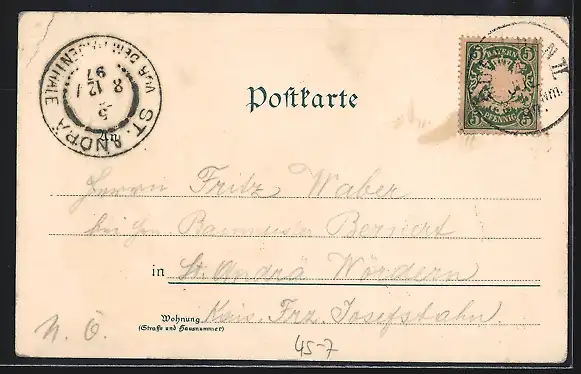 ST. ANDRÄ
VOR DEM HAGENTHALE
8 12
5
97
Postkarte
5 BAYERN 5
5 PFENNIG 5
An
Herrn Fritz Waber
bei Hn Baumeister Bernert
in St. Andrä Wördern
Wohnung
(Straße und Hausnummer)
Kais. Frz. Josefsbahn.
N. Ö.
45-7